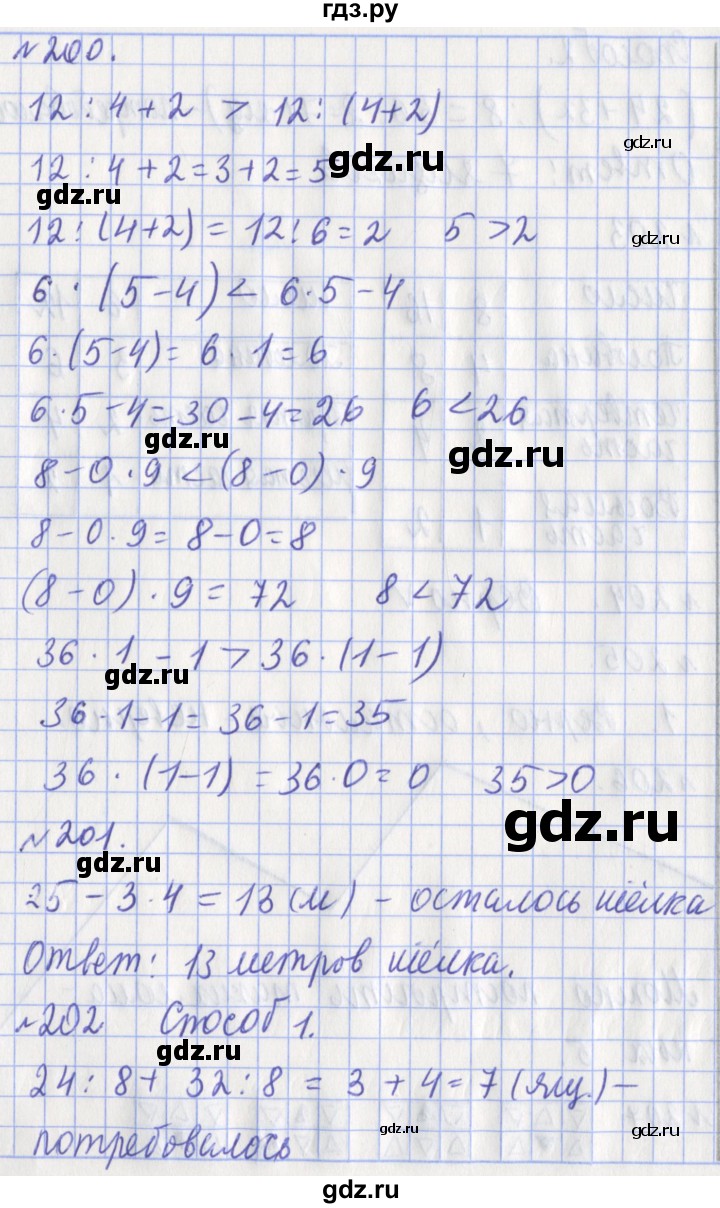 гдз.ру
№200.
12 : 4 + 2 > 12 : (4+2)
gdz.ru
12 : 4 + 2 = 3 + 2 = 5
gdz.ru
gdz.ru
12 : (4+2) = 12 : 6 = 2 5 > 2
gdz.ru
6 · (5-4) < 6·5-4
6·(5-4) = 6·1 = 6
6·5-4=30-4=26 6 < 26
gdz.ru
gdz.ru
8-0·9 < (8-0)·9
8-0·9 = 8-0=8
(8-0)·9 = 72 8 < 72
36·1 - 1 > 36·(1-1)
gdz.ru
36·1-1 = 36-1=35
36·(1-1) = 36·0=0 35>0
gdz.ru
№201.
gdz.ru
25 - 3·4 = 13 (м) - осталось шёлка
Ответ: 13 метров шёлка.
№202 Способ 1.
gdz.ru
24 : 8 + 32 : 8 = 3 + 4 = 7 (ящ.) -
gdz.ru
потребовалось
gdz.ru
gdz.ru